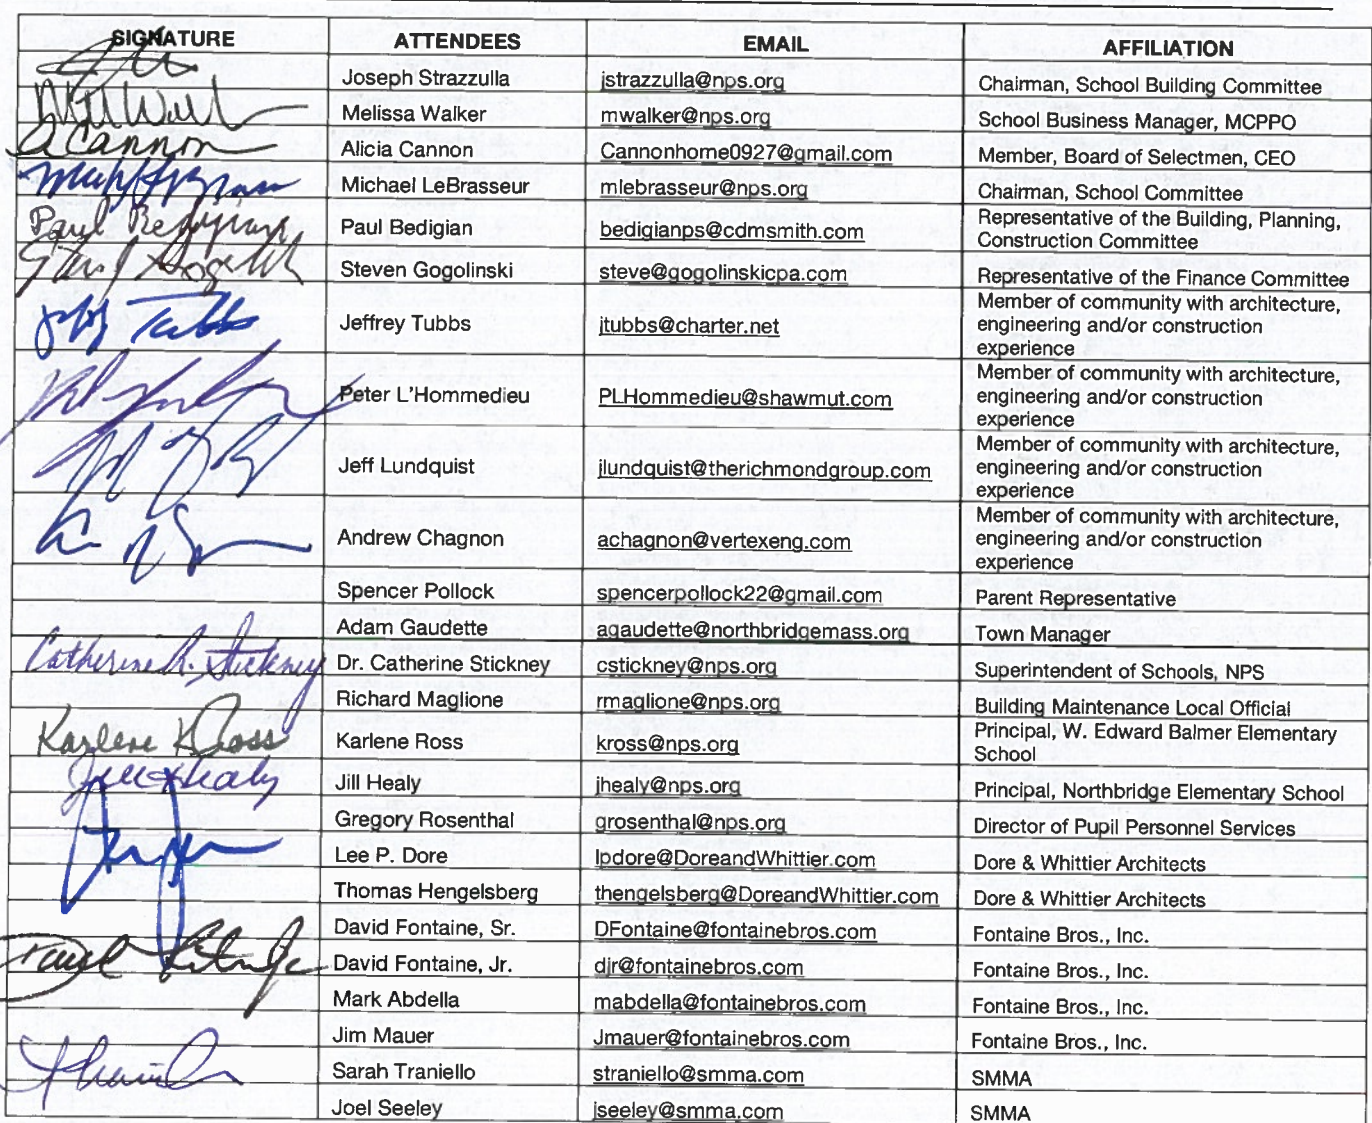 SIGNATURE ATTENDEES EMAIL AFFILIATION
Joseph Strazzulla jstrazzulla@nps.org Chairman, School Building Committee
Melissa Walker mwalker@nps.org School Business Manager, MCPPO
ACannon Alicia Cannon Cannonhome0927@gmail.com Member, Board of Selectmen, CEO
Michael LeBrasseur mlebrasseur@nps.org Chairman, School Committee
Paul Bedigian Paul Bedigian bedigianps@cdmsmith.com Representative of the Building, Planning,
Construction Committee
Steven Gogolinski steve@gogolinskicpa.com Representative of the Finance Committee
Jeffrey Tubbs jtubbs@charter.net Member of community with architecture,
engineering and/or construction
experience
Peter L'Hommedieu PLHommedieu@shawmut.com Member of community with architecture,
engineering and/or construction
experience
Jeff Lundquist jlundquist@therichmondgroup.com Member of community with architecture,
engineering and/or construction
experience
Andrew Chagnon achagnon@vertexeng.com Member of community with architecture,
engineering and/or construction
experience
Spencer Pollock spencerpollock22@gmail.com Parent Representative
Adam Gaudette agaudette@northbridgemass.org Town Manager
Catherine A. Stickney Dr. Catherine Stickney cstickney@nps.org Superintendent of Schools, NPS
Richard Maglione rmaglione@nps.org Building Maintenance Local Official
Karlene K Ross Karlene Ross kross@nps.org Principal, W. Edward Balmer Elementary
School
Jill Healy Jill Healy jhealy@nps.org Principal, Northbridge Elementary School
Gregory Rosenthal grosenthal@nps.org Director of Pupil Personnel Services
Lee P. Dore lpdore@DoreandWhittier.com Dore & Whittier Architects
Thomas Hengelsberg thengelsberg@DoreandWhittier.com Dore & Whittier Architects
David Fontaine, Sr. DFontaine@fontainebros.com Fontaine Bros., Inc.
David Fontaine, Jr. djr@fontainebros.com Fontaine Bros., Inc.
Mark Abdella mabdella@fontainebros.com Fontaine Bros., Inc.
Jim Mauer Jmauer@fontainebros.com Fontaine Bros., Inc.
Sarah Traniello straniello@smma.com SMMA
Joel Seeley jseeley@smma.com SMMA